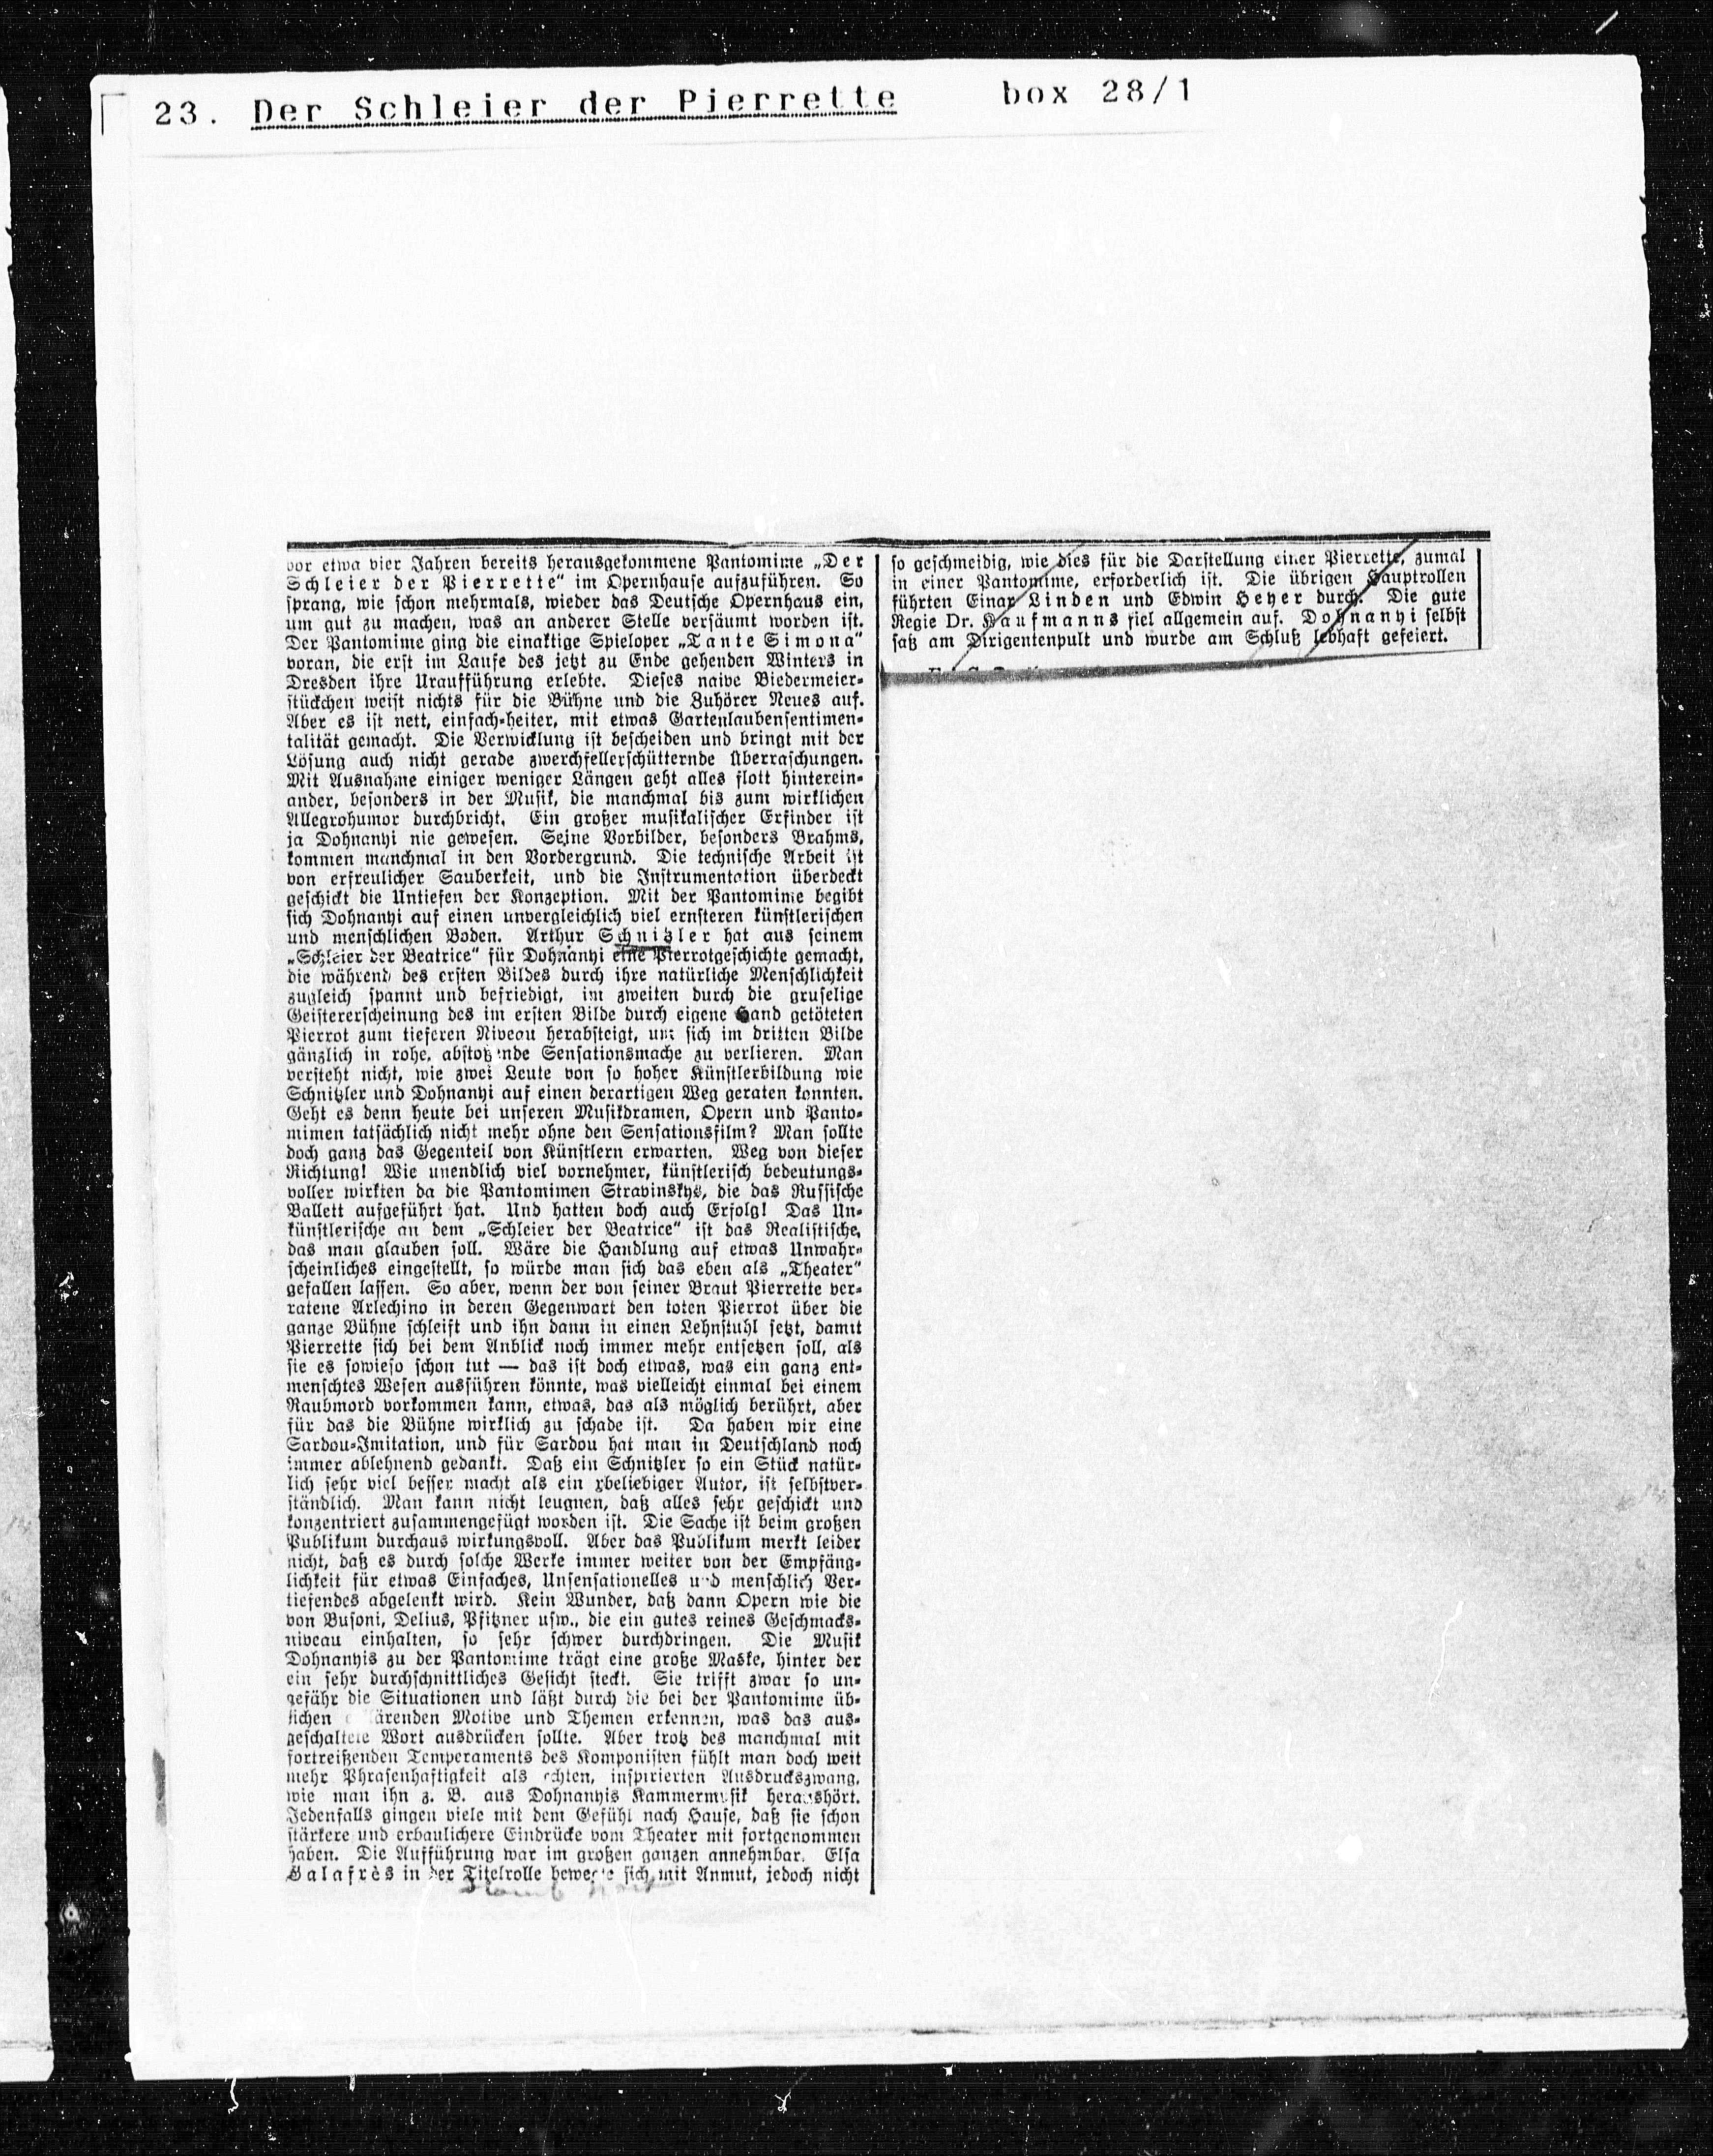 23. Der Schleier der Pierrette box 28/1
vor etwa vier Jahren bereits herausgekommene Pantomime „Der
Schleier der Pierrette“ im Opernhause aufzuführen. So
sprang, wie schon mehrmals, wieder das Deutsche Opernhaus ein,
um gut zu machen, was an anderer Stelle versäumt worden ist.
Der Pantomime ging die einaktige Spieloper „Tante Simona“
voran, die erst im Laufe des jetzt zu Ende gehenden Winters in
Dresden ihre Uraufführung erlebte. Dieses naive Biedermeier-
stückchen weist nichts für die Bühne und die Zuhörer Neues auf.
Aber es ist nett, einfach-heiter, mit etwas Gartenlaubensentimen-
talität gemacht. Die Verwicklung ist bescheiden und bringt mit der
Lösung auch nicht gerade zwerchfellerschütternde Überraschungen.
Mit Ausnahme einiger weniger Längen geht alles flott hinterein-
ander, besonders in der Musik, die manchmal bis zum wirklichen
Allegrohumor durchbricht. Ein großer musikalischer Erfinder ist
ja Dohnanyi nie gewesen. Seine Vorbilder, besonders Brahms,
kommen manchmal in den Vordergrund. Die technische Arbeit ist
von erfreulicher Sauberkeit, und die Instrumentation überdeckt
geschickt die Untiefen der Konzeption. Mit der Pantomime begibt
sich Dohnanyi auf einen unvergleichlich viel ernsteren künstlerischen
und menschlichen Boden. Arthur Schnitzler hat aus seinem
„Schleier der Beatrice“ für Dohnanyi eine Pierrotgeschichte gemacht,
die während des ersten Bildes durch ihre natürliche Menschlichkeit
zugleich spannt und befriedigt, im zweiten durch die gruselige
Geistererscheinung des im ersten Bilde durch eigene Hand getöteten
Pierrot zum tieferen Niveau herabsteigt, um sich im dritten Bilde
gänzlich in rohe, abstoßende Sensationsmache zu verlieren. Man
versteht nicht, wie zwei Leute von so hoher Künstlerbildung wie
Schnitzler und Dohnanyi auf einen derartigen Weg geraten konnten.
Geht es denn heute bei unseren Musikdramen, Opern und Panto-
mimen tatsächlich nicht mehr ohne den Sensationsfilm? Man sollte
doch ganz das Gegenteil von Künstlern erwarten. Weg von dieser
Richtung! Wie unendlich viel vornehmer, künstlerisch bedeutungs-
voller wirkten da die Pantomimen Stravinskys, die das Russische
Ballett aufgeführt hat. Und hatten doch auch Erfolg! Das Un-
künstlerische an dem „Schleier der Beatrice“ ist das Realistische,
das man glauben soll. Wäre die Handlung auf etwas Unwahr-
scheinliches eingestellt, so würde man sich das eben als „Theater“
gefallen lassen. So aber, wenn der von seiner Braut Pierrette ver-
ratene Arlechino in deren Gegenwart den toten Pierrot über die
ganze Bühne schleift und ihn dann in einen Lehnstuhl setzt, damit
Pierrette sich bei dem Anblick noch immer mehr entsetzen soll, als
sie es sowieso schon tut — das ist doch etwas, was ein ganz ent-
menschtes Wesen ausführen könnte, was vielleicht einmal bei einem
Raubmord vorkommen kann, etwas, das als möglich berührt, aber
für das die Bühne wirklich zu schade ist. Da haben wir eine
Sardou-Imitation, und für Sardou hat man in Deutschland noch
immer ablehnend gedankt. Daß ein Schnitzler so ein Stück natür-
lich sehr viel besser macht als ein xbeliebiger Autor, ist selbstver-
ständlich. Man kann nicht leugnen, daß alles sehr geschickt und
konzentriert zusammengefügt worden ist. Die Sache ist beim großen
Publikum durchaus wirkungsvoll. Aber das Publikum merkt leider
nicht, daß es durch solche Werke immer weiter von der Empfäng-
lichkeit für etwas Einfaches, Unsensationelles und menschlich Ver-
tiefendes abgelenkt wird. Kein Wunder, daß dann Opern wie die
von Busoni, Delius, Pfitzner usw., die ein gutes reines Geschmacks-
niveau einhalten, so sehr schwer durchdringen. Die Musik
Dohnanyis zu der Pantomime trägt eine große Maske, hinter der
ein sehr durchschnittliches Gesicht steckt. Sie trifft zwar so un-
gefähr die Situationen und läßt durch die bei der Pantomime üb-
lichen erklärenden Motive und Themen erkennen, was das aus-
geschaltete Wort ausdrücken sollte. Aber trotz des manchmal mit
fortreißenden Temperaments des Komponisten fühlt man doch weit
mehr Phrasenhaftigkeit als echten, inspirierten Ausdruckszwang,
wie man ihn z. B. aus Dohnanyis Kammermusik heraushört.
Jedenfalls gingen viele mit dem Gefühl nach Hause, daß sie schon
stärkere und erbaulichere Eindrücke vom Theater mit fortgenommen
haben. Die Aufführung war im großen ganzen annehmbar. Elsa
Galafrès in der Titelrolle bewegte sich mit Anmut, jedoch nicht
so geschmeidig, wie dies für die Darstellung einer Pierrette, zumal
in einer Pantomime, erforderlich ist. Die übrigen Hauptrollen
führten Einar Linden und Edwin Heyer durch. Die gute
Regie Dr. Kaufmanns fiel allgemein auf. Dohnanyi selbst
saß am Dirigentenpult und wurde am Schluß lebhaft gefeiert.